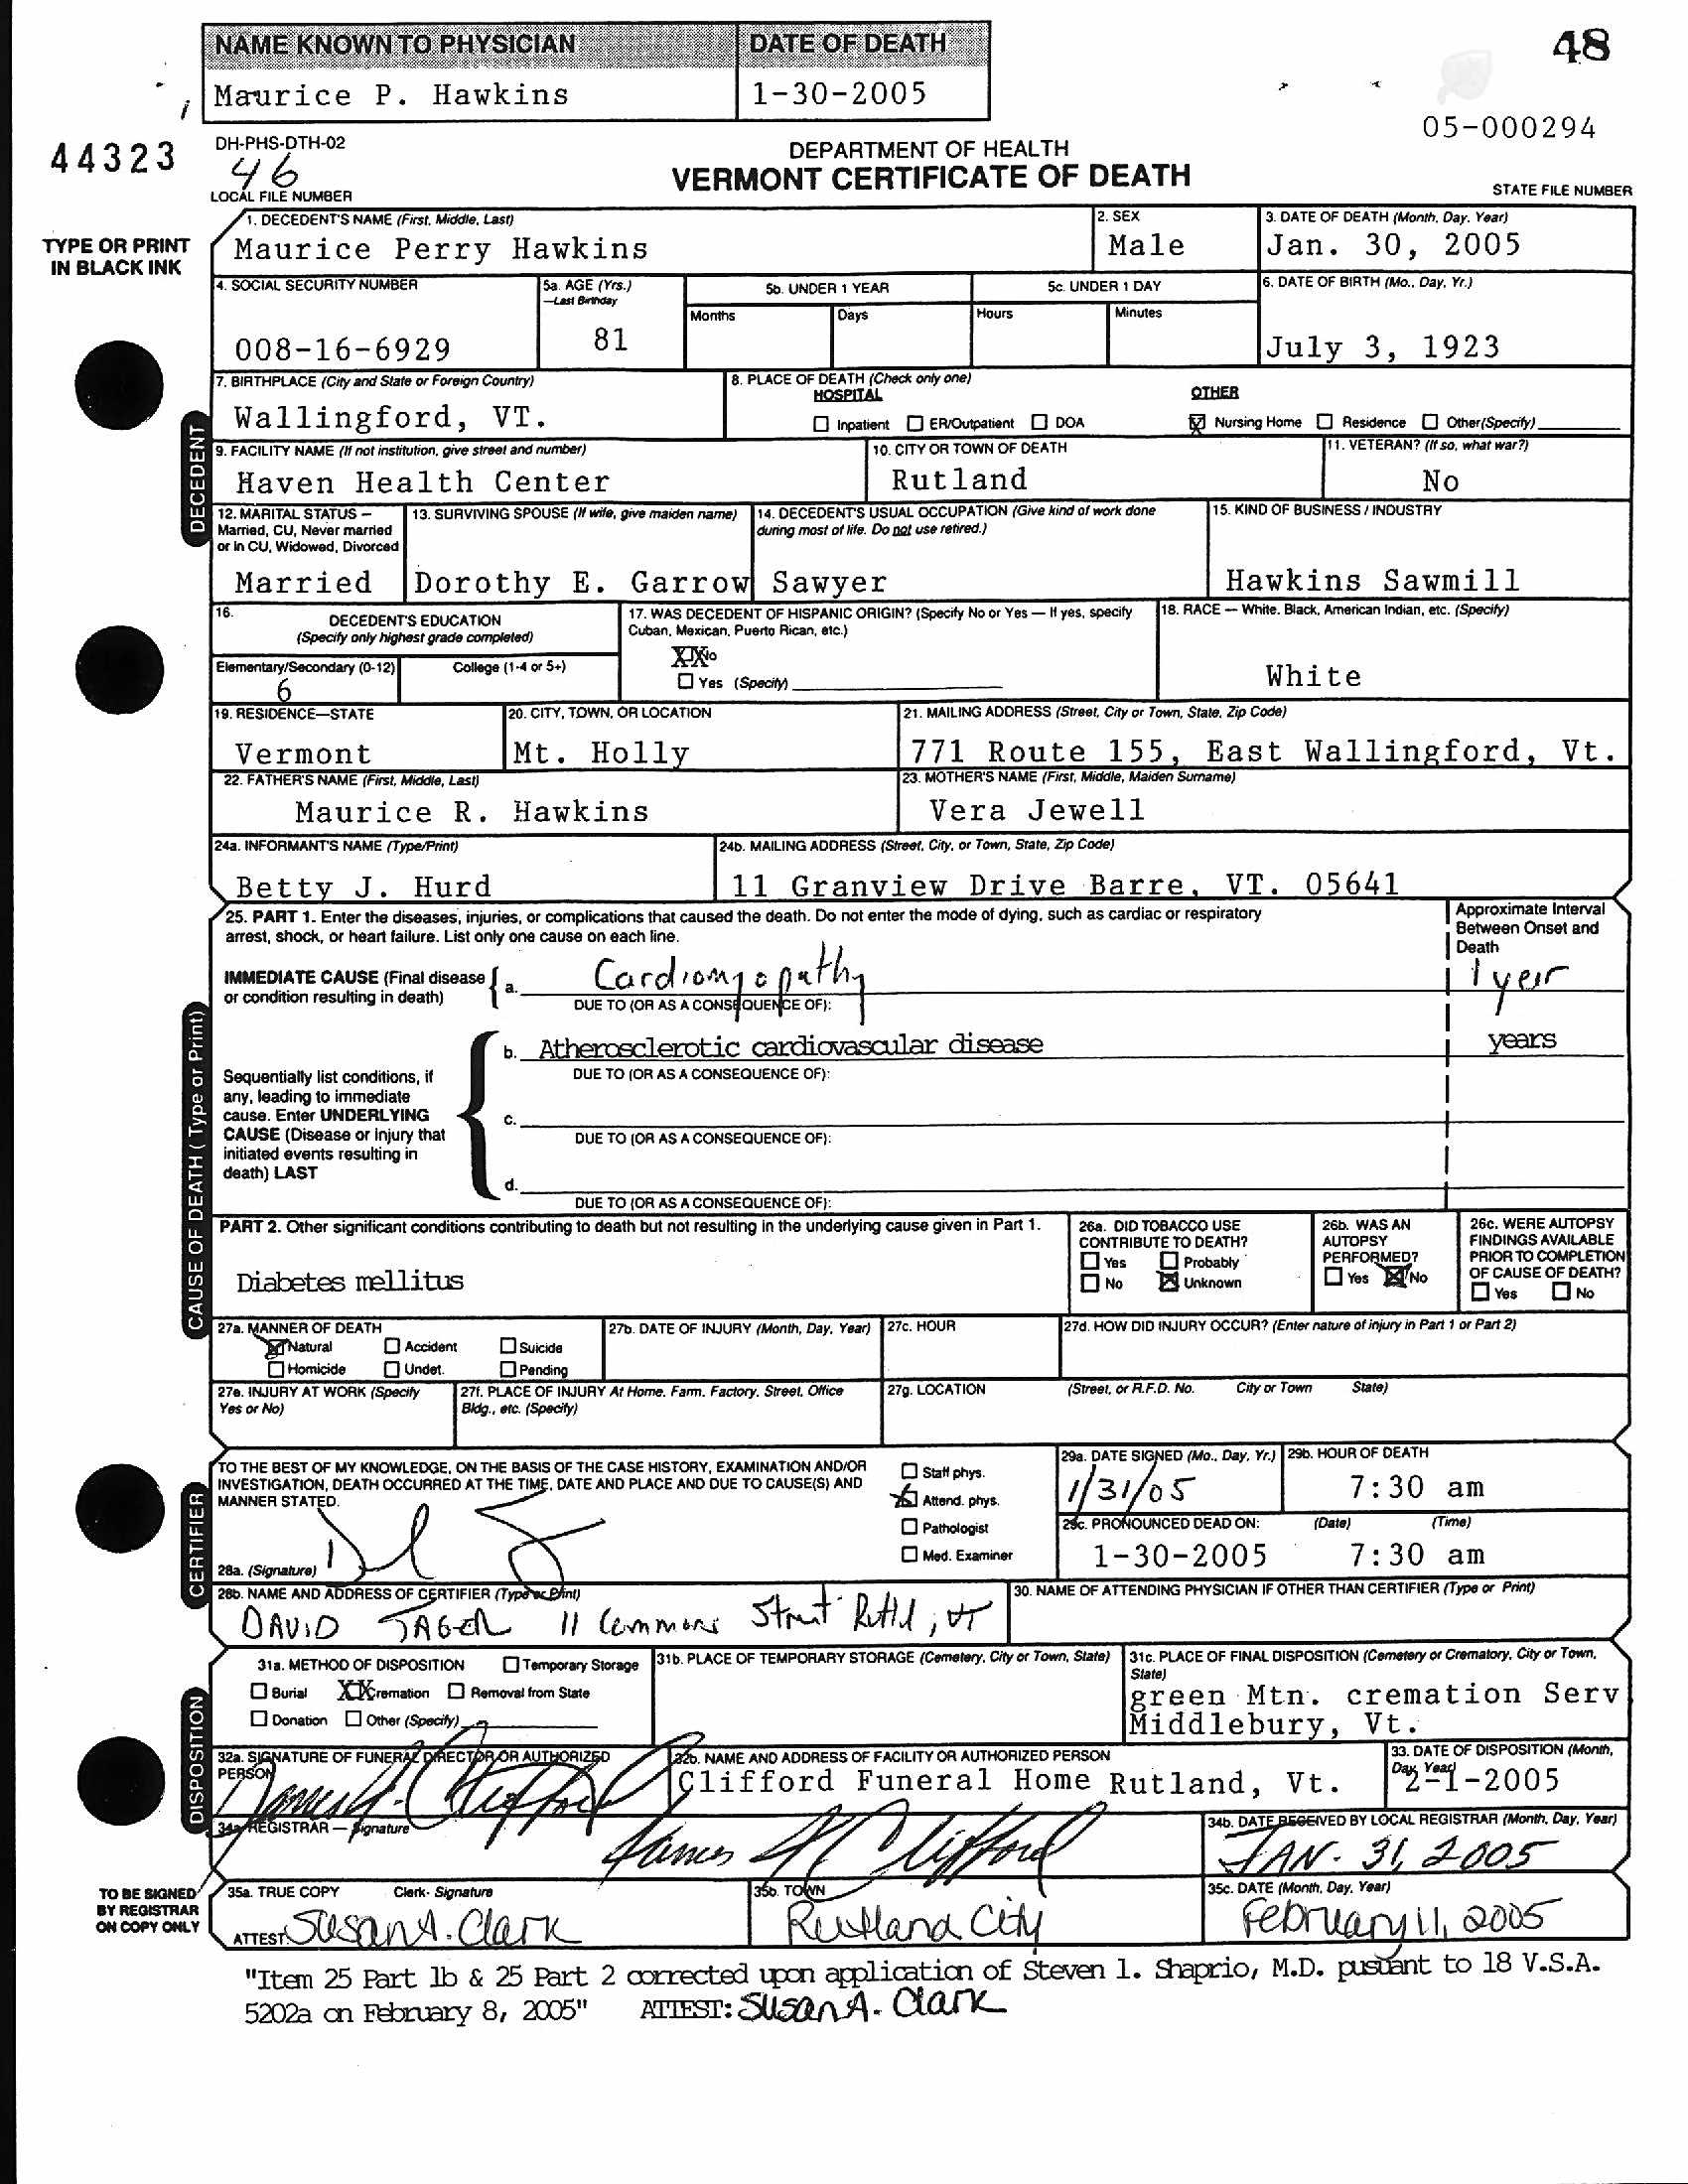 NAME KNOWN TO PHYSICIAN DATE OF DEATH 48
Maurice P. Hawkins 1-30-2005
05-000294
44323 DH-PHS-DTH-02
46
LOCAL FILE NUMBER
DEPARTMENT OF HEALTH
VERMONT CERTIFICATE OF DEATH
STATE FILE NUMBER
TYPE OR PRINT
IN BLACK INK
DECEDENT
1. DECEDENT'S NAME (First, Middle, Last) 2. SEX 3. DATE OF DEATH (Month, Day, Year)
Maurice Perry Hawkins Male Jan. 30, 2005
4. SOCIAL SECURITY NUMBER 5a. AGE (Yrs.) 5b. UNDER 1 YEAR 5c. UNDER 1 DAY 6. DATE OF BIRTH (Mo., Day, Yr.)
—Last Birthday
Months Days Hours Minutes
008-16-6929 81 July 3, 1923
7. BIRTHPLACE (City and State or Foreign Country) 8. PLACE OF DEATH (Check only one)
HOSPITAL OTHER
Wallingford, VT. Inpatient ER/Outpatient DOA Nursing Home Residence Other(Specify)
9. FACILITY NAME (If not institution, give street and number) 10. CITY OR TOWN OF DEATH 11. VETERAN? (If so, what war?)
Haven Health Center Rutland No
12. MARITAL STATUS – 13. SURVIVING SPOUSE (If wife, give maiden name) 14. DECEDENT'S USUAL OCCUPATION (Give kind of work done 15. KIND OF BUSINESS / INDUSTRY
Married, CU, Never married during most of life. Do not use retired.)
or In CU, Widowed, Divorced
Married Dorothy E. Garrow Sawyer Hawkins Sawmill
16. DECEDENT'S EDUCATION 17. WAS DECEDENT OF HISPANIC ORIGIN? (Specify No or Yes — If yes, specify 18. RACE — White, Black, American Indian, etc. (Specify)
(Specify only highest grade completed) Cuban, Mexican, Puerto Rican, etc.)
XX No
Elementary/Secondary (0-12) College (1-4 or 5+) White
6 Yes (Specify)
19. RESIDENCE—STATE 20. CITY, TOWN, OR LOCATION 21. MAILING ADDRESS (Street, City or Town, State, Zip Code)
Vermont Mt. Holly 771 Route 155, East Wallingford, Vt.
22. FATHER'S NAME (First, Middle, Last) 23. MOTHER'S NAME (First, Middle, Maiden Surname)
Maurice R. Hawkins Vera Jewell
24a. INFORMANT'S NAME (Type/Print) 24b. MAILING ADDRESS (Street, City, or Town, State, Zip Code)
Betty J. Hurd 11 Granview Drive Barre, VT. 05641
CAUSE OF DEATH (Type or Print)
25. PART 1. Enter the diseases, injuries, or complications that caused the death. Do not enter the mode of dying, such as cardiac or respiratory
arrest, shock, or heart failure. List only one cause on each line.
Approximate Interval
Between Onset and
Death
IMMEDIATE CAUSE (Final disease
or condition resulting in death)
a. Cardiomyopathy 1 year
DUE TO (OR AS A CONSEQUENCE OF):
b. Atherosclerotic cardiovascular disease years
DUE TO (OR AS A CONSEQUENCE OF):
Sequentially list conditions, if
any, leading to immediate
cause. Enter UNDERLYING
CAUSE (Disease or injury that
initiated events resulting in
death) LAST
c.
DUE TO (OR AS A CONSEQUENCE OF):
d.
DUE TO (OR AS A CONSEQUENCE OF):
PART 2. Other significant conditions contributing to death but not resulting in the underlying cause given in Part 1.
Diabetes mellitus
26a. DID TOBACCO USE
CONTRIBUTE TO DEATH?
Yes Probably
No Unknown
26b. WAS AN
AUTOPSY
PERFORMED?
Yes No
26c. WERE AUTOPSY
FINDINGS AVAILABLE
PRIOR TO COMPLETION
OF CAUSE OF DEATH?
Yes No
27a. MANNER OF DEATH 27b. DATE OF INJURY (Month, Day, Year) 27c. HOUR 27d. HOW DID INJURY OCCUR? (Enter nature of injury in Part 1 or Part 2)
Natural Accident Suicide
Homicide Undet. Pending
27e. INJURY AT WORK (Specify 27f. PLACE OF INJURY At Home, Farm, Factory, Street, Office 27g. LOCATION (Street, or R.F.D. No. City or Town State)
Yes or No) Bldg., etc. (Specify)
CERTIFIER
TO THE BEST OF MY KNOWLEDGE, ON THE BASIS OF THE CASE HISTORY, EXAMINATION AND/OR
INVESTIGATION, DEATH OCCURRED AT THE TIME, DATE AND PLACE AND DUE TO CAUSE(S) AND
MANNER STATED.
28a. (Signature)
Staff phys.
Attend. phys.
Pathologist
Med. Examiner
29a. DATE SIGNED (Mo., Day, Yr.) 29b. HOUR OF DEATH
1/31/05 7:30 am
29c. PRONOUNCED DEAD ON: (Date) (Time)
1-30-2005 7:30 am
28b. NAME AND ADDRESS OF CERTIFIER (Type or Print) 30. NAME OF ATTENDING PHYSICIAN IF OTHER THAN CERTIFIER (Type or Print)
DAVID 11 Commons Street Rutld, VT
DISPOSITION
31a. METHOD OF DISPOSITION Temporary Storage 31b. PLACE OF TEMPORARY STORAGE (Cemetery, City or Town, State) 31c. PLACE OF FINAL DISPOSITION (Cemetery or Crematory, City or Town,
State)
Burial XX Cremation Removal from State green Mtn. cremation Serv
Donation Other (Specify) Middlebury, Vt.
32a. SIGNATURE OF FUNERAL DIRECTOR OR AUTHORIZED 32b. NAME AND ADDRESS OF FACILITY OR AUTHORIZED PERSON 33. DATE OF DISPOSITION (Month,
PERSON Day, Year)
James A. Clifford Clifford Funeral Home Rutland, Vt. 2-1-2005
34a. REGISTRAR — Signature 34b. DATE RECEIVED BY LOCAL REGISTRAR (Month, Day, Year)
James A Clifford JAN. 31, 2005
TO BE SIGNED
BY REGISTRAR
ON COPY ONLY
35a. TRUE COPY Clerk- Signature 35b. TOWN 35c. DATE (Month, Day, Year)
ATTEST: Susan A. Clark Rutland City February 11, 2005
"Item 25 Part 1b & 25 Part 2 corrected upon application of Steven l. Shaprio, M.D. pusuant to 18 V.S.A.
5202a on February 8, 2005" ATTEST: Susan A. Clark